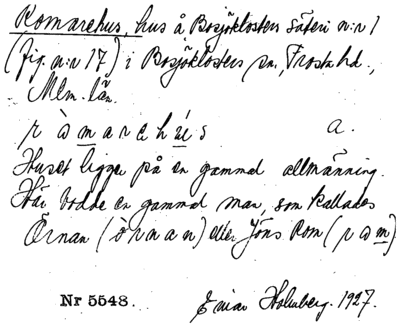 Romarehus, hus å Bosjöklosters säteri n:r 1
(fig. n:r 17) i Bosjöklosters sn, Frosta hd.,
Mlm. län.
r ò m a r e h ú s a.
Huset ligger på en gammal allmänning.
Här bodde en gammal man, som kallades
Örnan (ò r n a n) eller Jöns Rom (r o m)
Nr 5548. Einar Holmberg. 1927.